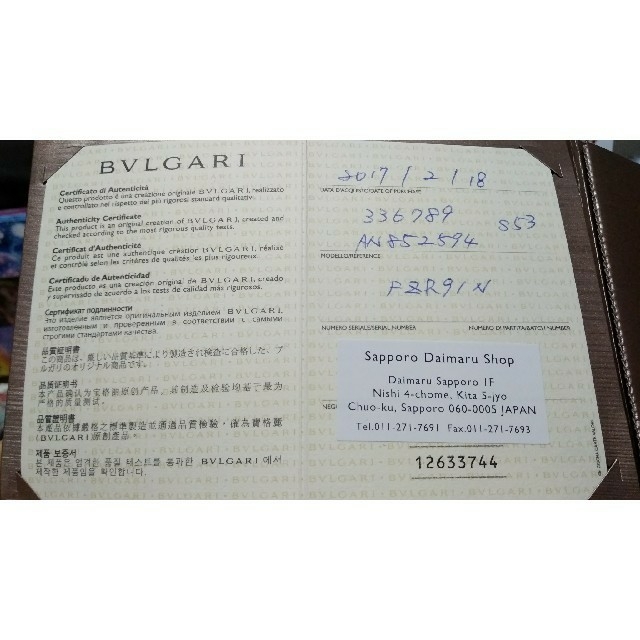 BVLGARI
Certificato di Autenticità
Questo prodotto è una creazione originale BVLGARI, realizzato
e controllato nel rispetto dei più rigorosi standard qualitativi.
Authenticity Certificate
This product is an original creation of BVLGARI, created and
checked according to the most rigorous quality tests.
Certificat d'Authenticité
Ce produit est une authentique création BVLGARI, réalisé
et contrôlé selon les critères de qualités les plus rigoureux.
Certificado de Autenticidad
Este producto es una creación original de BVLGARI, creado
y supervisado de acuerdo a los tests de calidad más rigurosos.
Сертификат подлинности
Это изделие является оригинальным изделием BVLGARI,
изготовленным и проверенным в соответствии с самыми
строгими стандартами качества.
品質証明書
この商品は、厳しい品質基準により製造され検査に合格した、ブ
ルガリのオリジナル商品です。
品质证明书
本产品确认为宝格丽原创产品，其制造及检验均基于最为
严格的质量测试。
品質證明書
本產品依據嚴格之標準製造並通過品質檢驗，確為寶格麗
(BVLGARI)原創產品。
제품 보증서
본 제품은 엄격한 품질 테스트를 통과한 BVLGARI에서
제작한 제품임을 확인합니다.
2017/2/18
DATA D'ACQUISTO/DATE OF PURCHASE
336789 853
AN852594
MODELLO/REFERENCE
NUMERO SERIALE/SERIAL NUMBER NUMERO DI PARTITA/BATCH NUMBER
Sapporo Daimaru Shop
Daimaru Sapporo 1F
Nishi 4-chome, Kita 5-jyo
Chuo-ku, Sapporo 060-0005 JAPAN
Tel.011-271-7691 Fax.011-271-7693
12633744